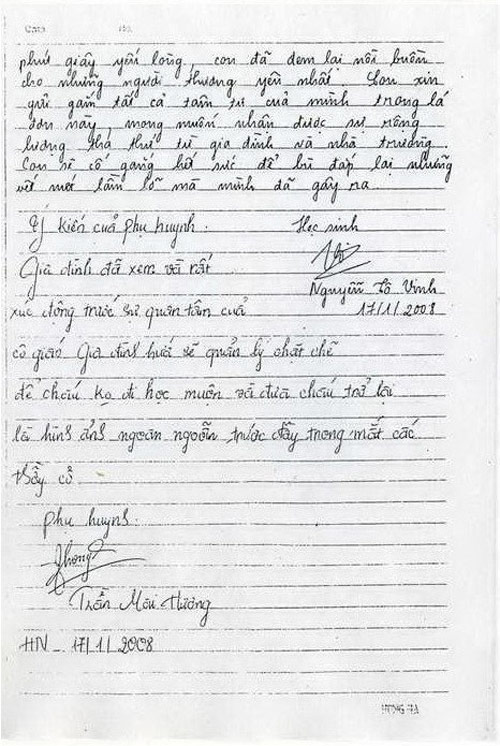 phút giây yếu lòng, con đã đem lại nỗi buồn
cho những người thương yêu nhất. Con xin
gửi gắm tất cả tâm tư của mình trong lá
đơn này, mong muốn nhận được sự rộng
lượng tha thứ từ gia đình và nhà trường.
Con sẽ cố gắng hết sức để bù đắp lại những
vết mọt lầm lỗi mà mình đã gây ra.
Ý kiến cuả phụ huynh. Học sinh
Gia đình đã xem và rất
Nguyễn Tô Vinh
xúc động trước sự quan tâm cuả 17/1/2008
cô giáo. Gia đình hứa sẽ quản lý chặt chẽ
để cháu ko đi học muộn và đưa cháu trở lại
là hình ảnh ngoan ngoãn trước đây trong mắt các
thầy cô
phụ huynh.
Trần Hương
HN - 17/1/2008
HONG HA